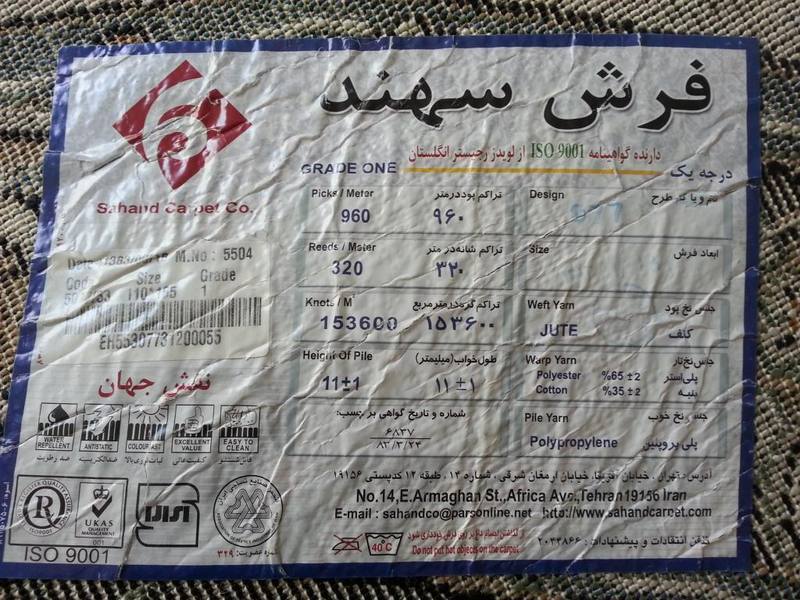 فرش سهند
دارنده گواهینامه ISO 9001 از لویدز رجیستر انگلستان
GRADE ONE
درجه یک
Sahand Carpet Co.
Picks / Meter
تراکم پود در متر
960
۹۶۰
Reeds / Meter
تراکم شانه در متر
320
۳۲۰
Knots / M²
تراکم گره در مترمربع
153600
۱۵۳۶۰۰
Height Of Pile
طول خواب (میلیمتر)
11±1
۱۱±۱
شماره و تاریخ گواهی برچسب:
۶۸۳۷
۸۳/۳/۲۴
Design
طرح
Size
ابعاد فرش
Weft Yarn
جنس نخ پود
JUTE
کنف
Warp Yarn
جنس نخ تار
Polyester %65 ±2
پلی‌استر
Cotton %35 ±2
پنبه
Pile Yarn
جنس نخ خوب
Polypropylene
پلی پروپیلین
M.No : 5504
Size
Grade
1
EH55307731200055
نقش جهان
WATER REPELLENT
ضد رطوبت
ANTISTATIC
ضدالکتریسیته
COLOURFAST
ثبات رنگ بالا
EXCELLENT VALUE
کیفیت عالی
EASY TO CLEAN
قابل شستشو
R
ISO9001
UKAS
QUALITY MANAGEMENT
001
ISO 9001
شماره عضویت: ۳۲۹
آدرس: تهران، خیابان آفریقا، خیابان ارمغان شرقی، شماره ۱۴، طبقه ۱۲ کدپستی ۱۹۱۵۶
No.14,E.Armaghan St.,Africa Ave.,Tehran 19156 Iran
E-mail : sahandco@parsonline.net http://www.sahandcarpet.com
40°C
از گذاشتن اجسام داغ بر روی فرش خودداری شود
Do not put hot objects on the carpet
تلفن انتقادات و پیشنهادات : ۲۰۴۳۸۶۶